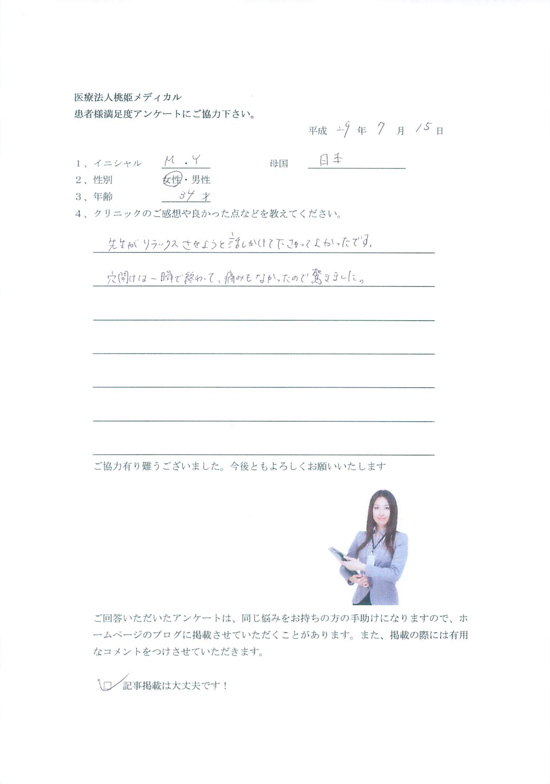 医療法人桃姫メディカル
患者様満足度アンケートにご協力下さい。
平成 29 年 7 月 15 日
1、イニシャル M・Y 母国 日本
2、性別 女性・男性
3、年齢 34 才
4、クリニックのご感想や良かった点などを教えてください。
先生がリラックスさせようと話しかけて下さってよかったです。
穴開けは一瞬で終わって、痛みもなかったので驚きました。
ご協力有り難うございました。今後ともよろしくお願いいたします
ご回答いただいたアンケートは、同じ悩みをお持ちの方の手助けになりますので、ホ
ームページのブログに掲載させていただくことがあります。また、掲載の際には有用
なコメントをつけさせていただきます。
□記事掲載は大丈夫です！